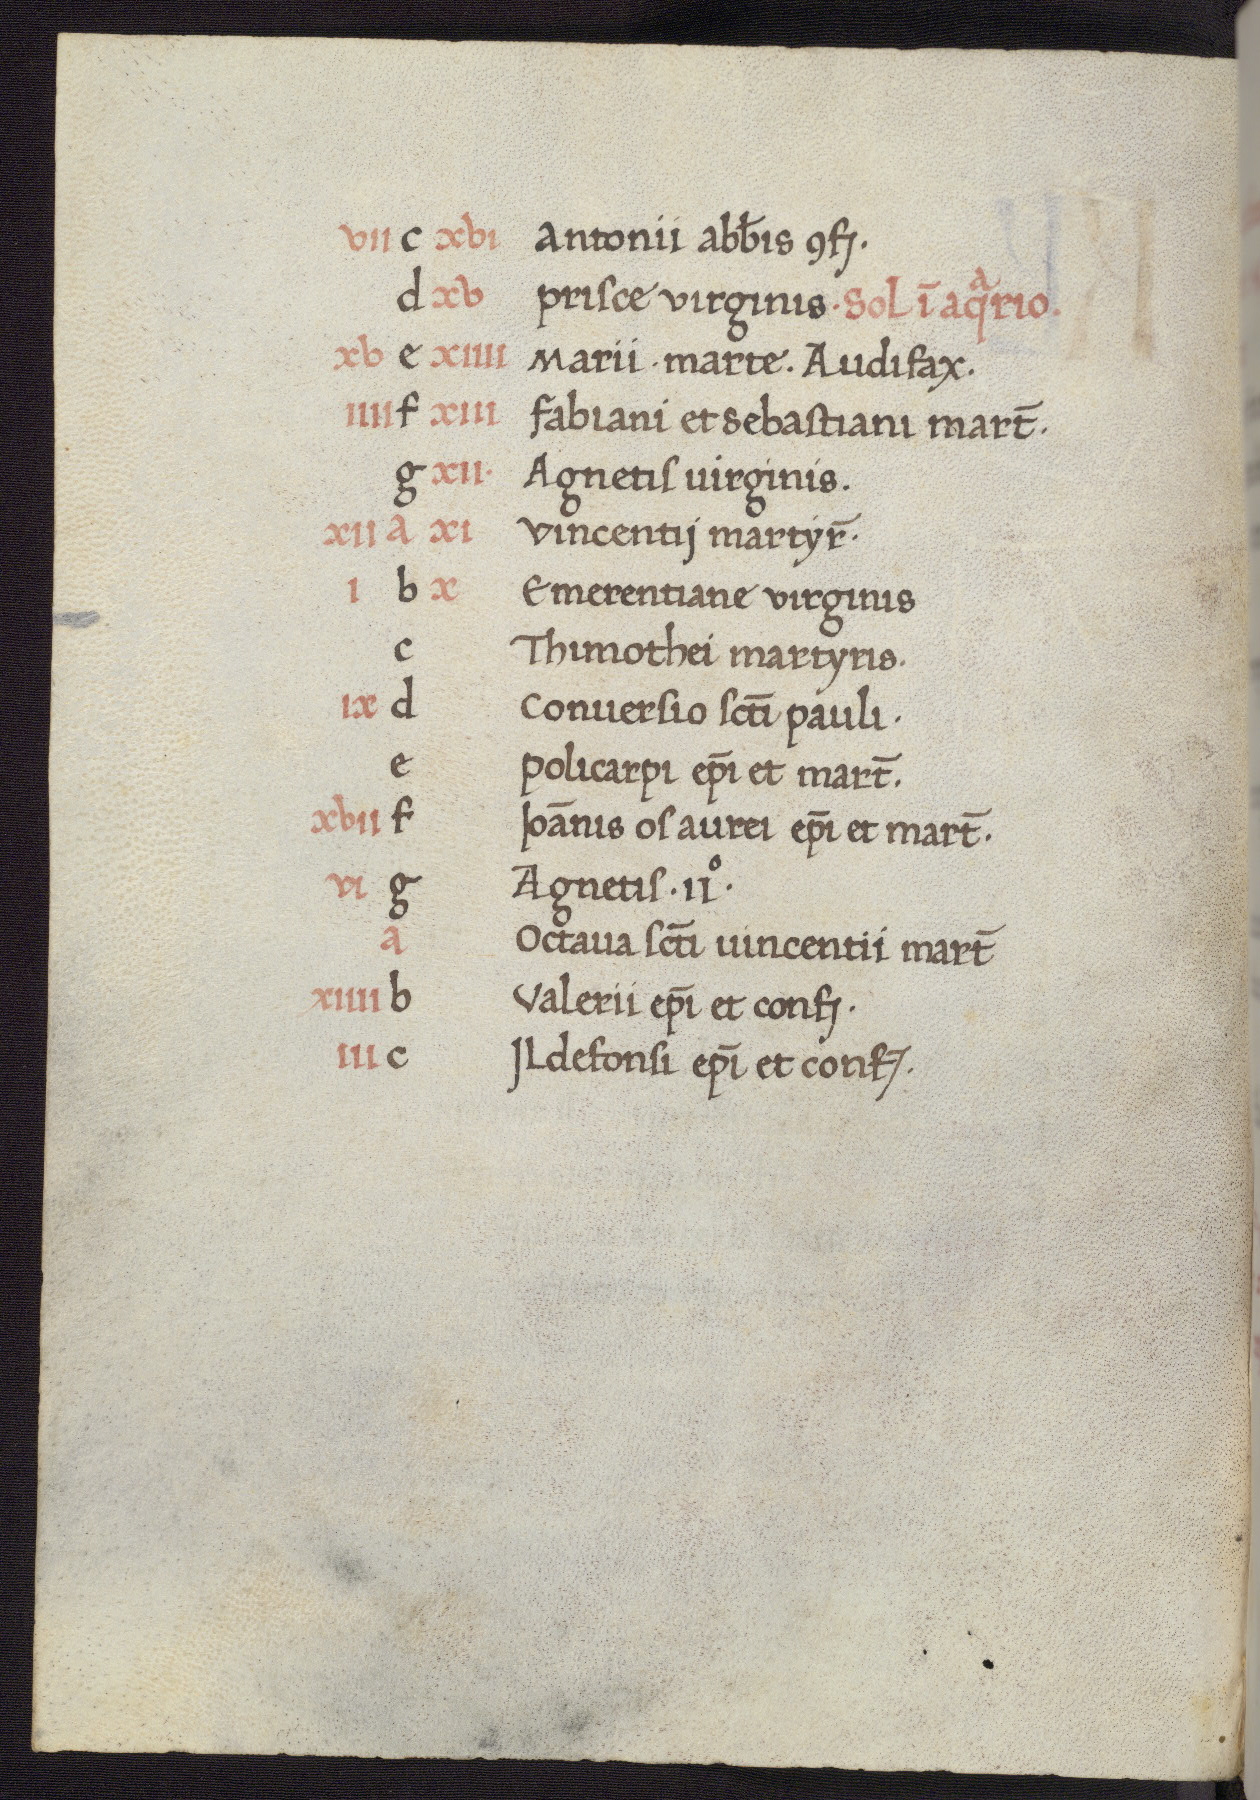 vii c xvi Antonii abb̄is ꝯfꝭ.
d xv prisce virginis. Sol ī aqͣrio.
xv e xiiii Marii. marte. Audifax.
iiii f xiii fabiani et sebastiani mart̄.
g xii. Agnetis uirginis.
xii A xi vincentij martyr̄.
i b x Emerentiane virginis
c Thimothei martyris.
ix d Conuersio sct̄i pauli.
e policarpi ep̄i et mart̄.
xvii f Joānis os aurei ep̄i et mart̄.
vi g Agnetis. ii°.
A Octaua sct̄i uincentii mart̄
xiiii b Valerii ep̄i et confꝭ.
iii c Jldefonsi ep̄i et confꝭ.